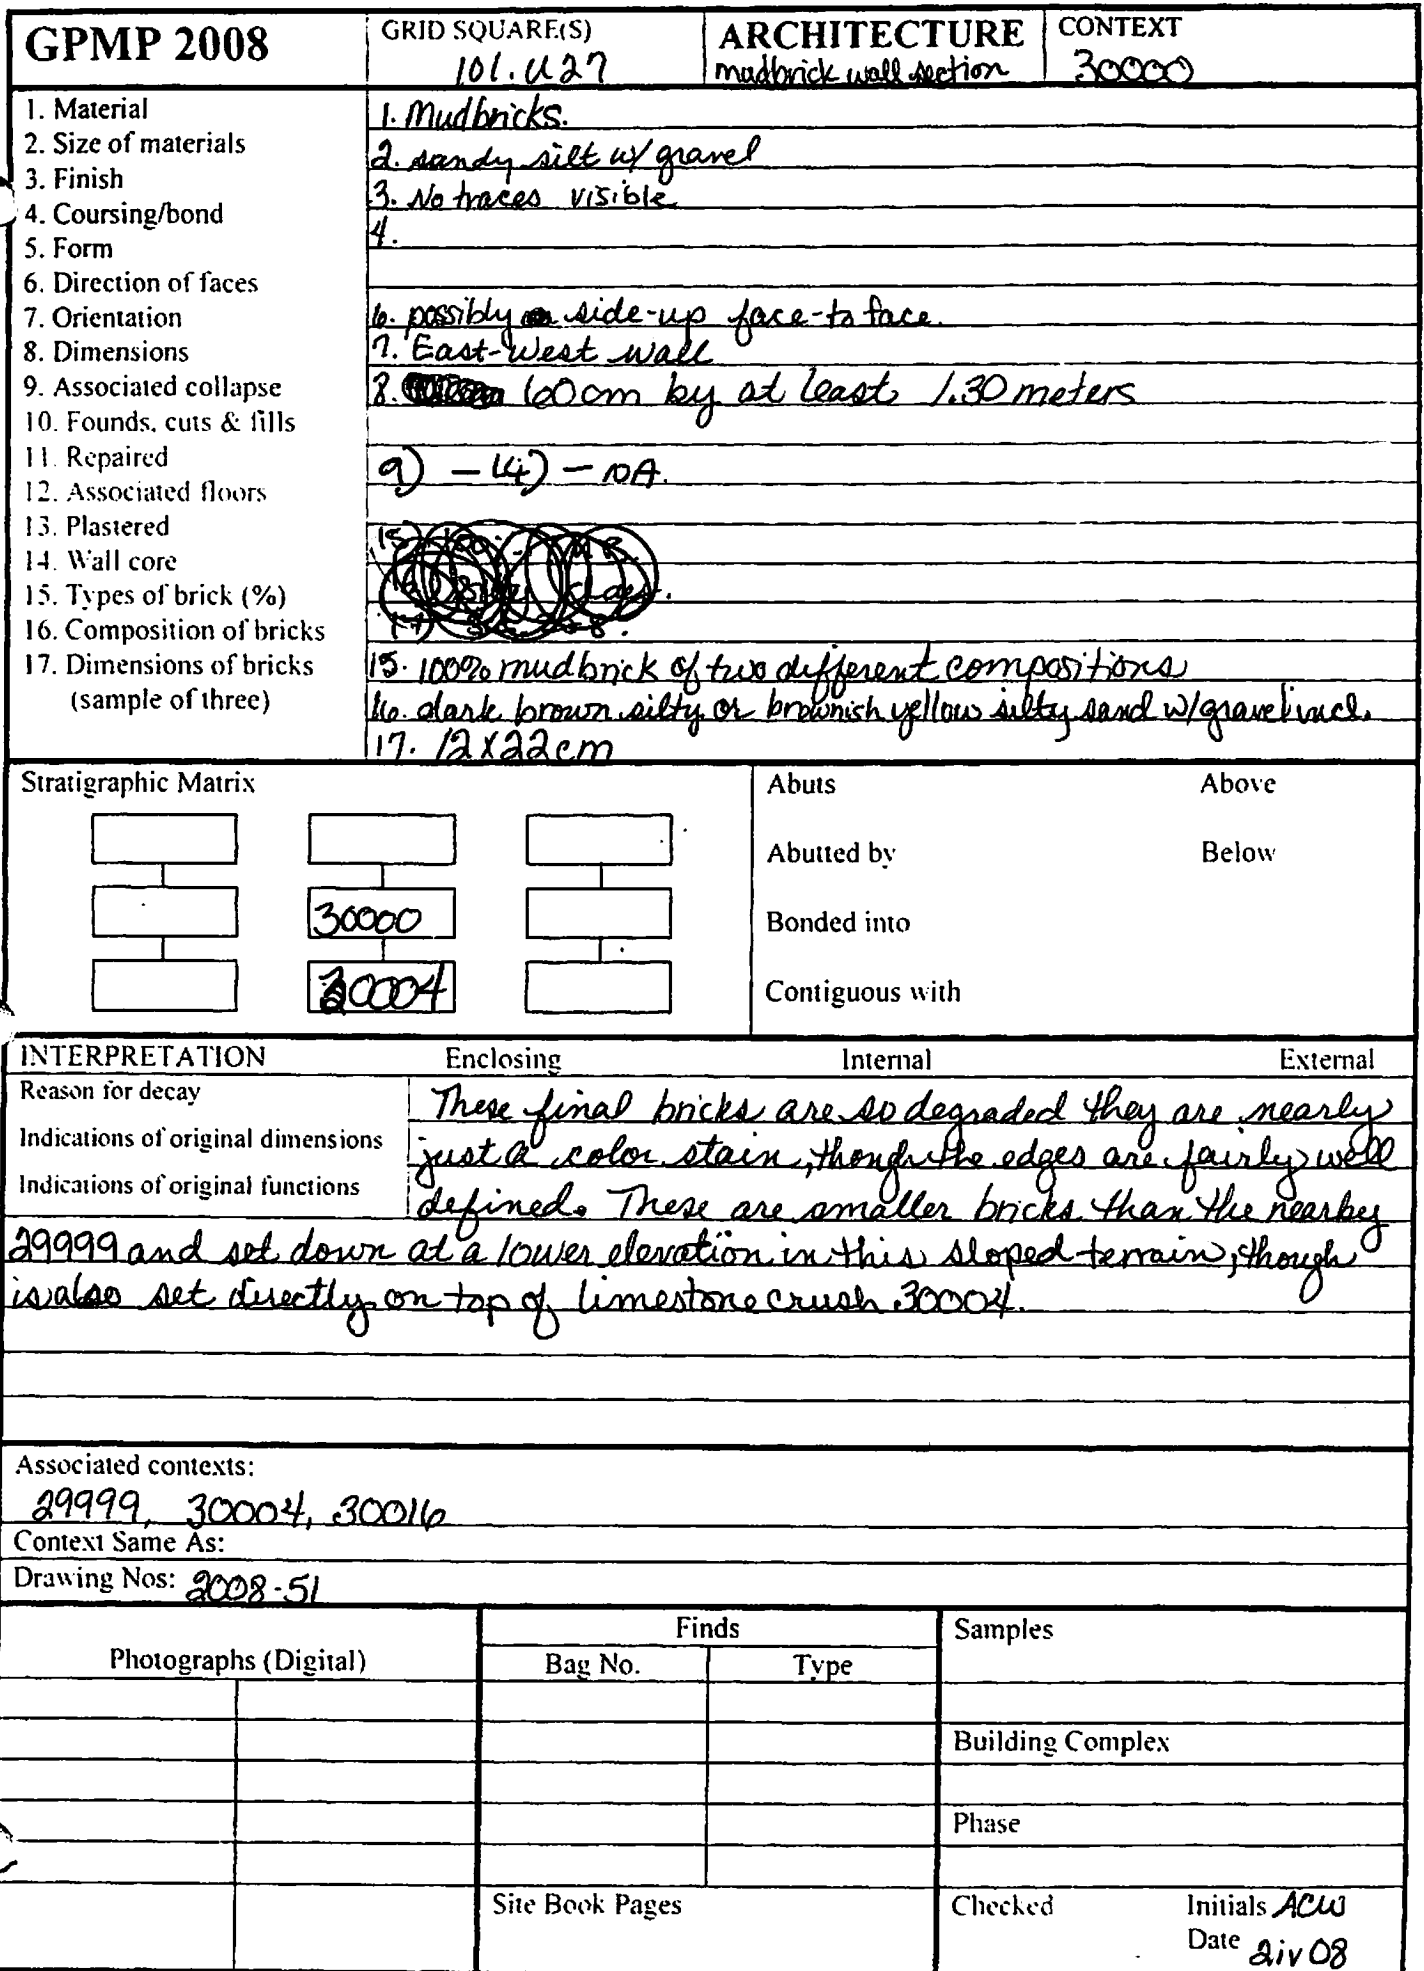 GPMP 2008
GRID SQUARE(S)
101.U27
ARCHITECTURE
mudbrick wall section
CONTEXT
30000
1. Material
2. Size of materials
3. Finish
4. Coursing/bond
5. Form
6. Direction of faces
7. Orientation
8. Dimensions
9. Associated collapse
10. Founds, cuts & fills
11. Repaired
12. Associated floors
13. Plastered
14. Wall core
15. Types of brick (%)
16. Composition of bricks
17. Dimensions of bricks
(sample of three)
1. Mudbricks.
2. sandy silt w/ gravel
3. No traces visible
4.
6. possibly side-up face-to face.
7. East-West wall
8. 60cm by at least 1.30 meters
9) – 14) – NA.
15. 100% mudbrick of two different compositions
16. dark brown silty or brownish yellow silty sand w/gravel incl.
17. 12x22cm
Stratigraphic Matrix
30000
30004
Abuts Above
Abutted by Below
Bonded into
Contiguous with
INTERPRETATION Enclosing Internal External
Reason for decay
Indications of original dimensions
Indications of original functions
These final bricks are so degraded they are nearly
just a color stain, though the edges are fairly well
defined. These are smaller bricks than the nearby
29999 and set down at a lower elevation in this sloped terrain, though
is also set directly on top of limestone crush 30004.
Associated contexts:
29999, 30004, 30016
Context Same As:
Drawing Nos: 2008-51
Photographs (Digital)
Finds
Bag No. Type
Site Book Pages
Samples
Building Complex
Phase
Checked Initials ACW
Date 2iv08